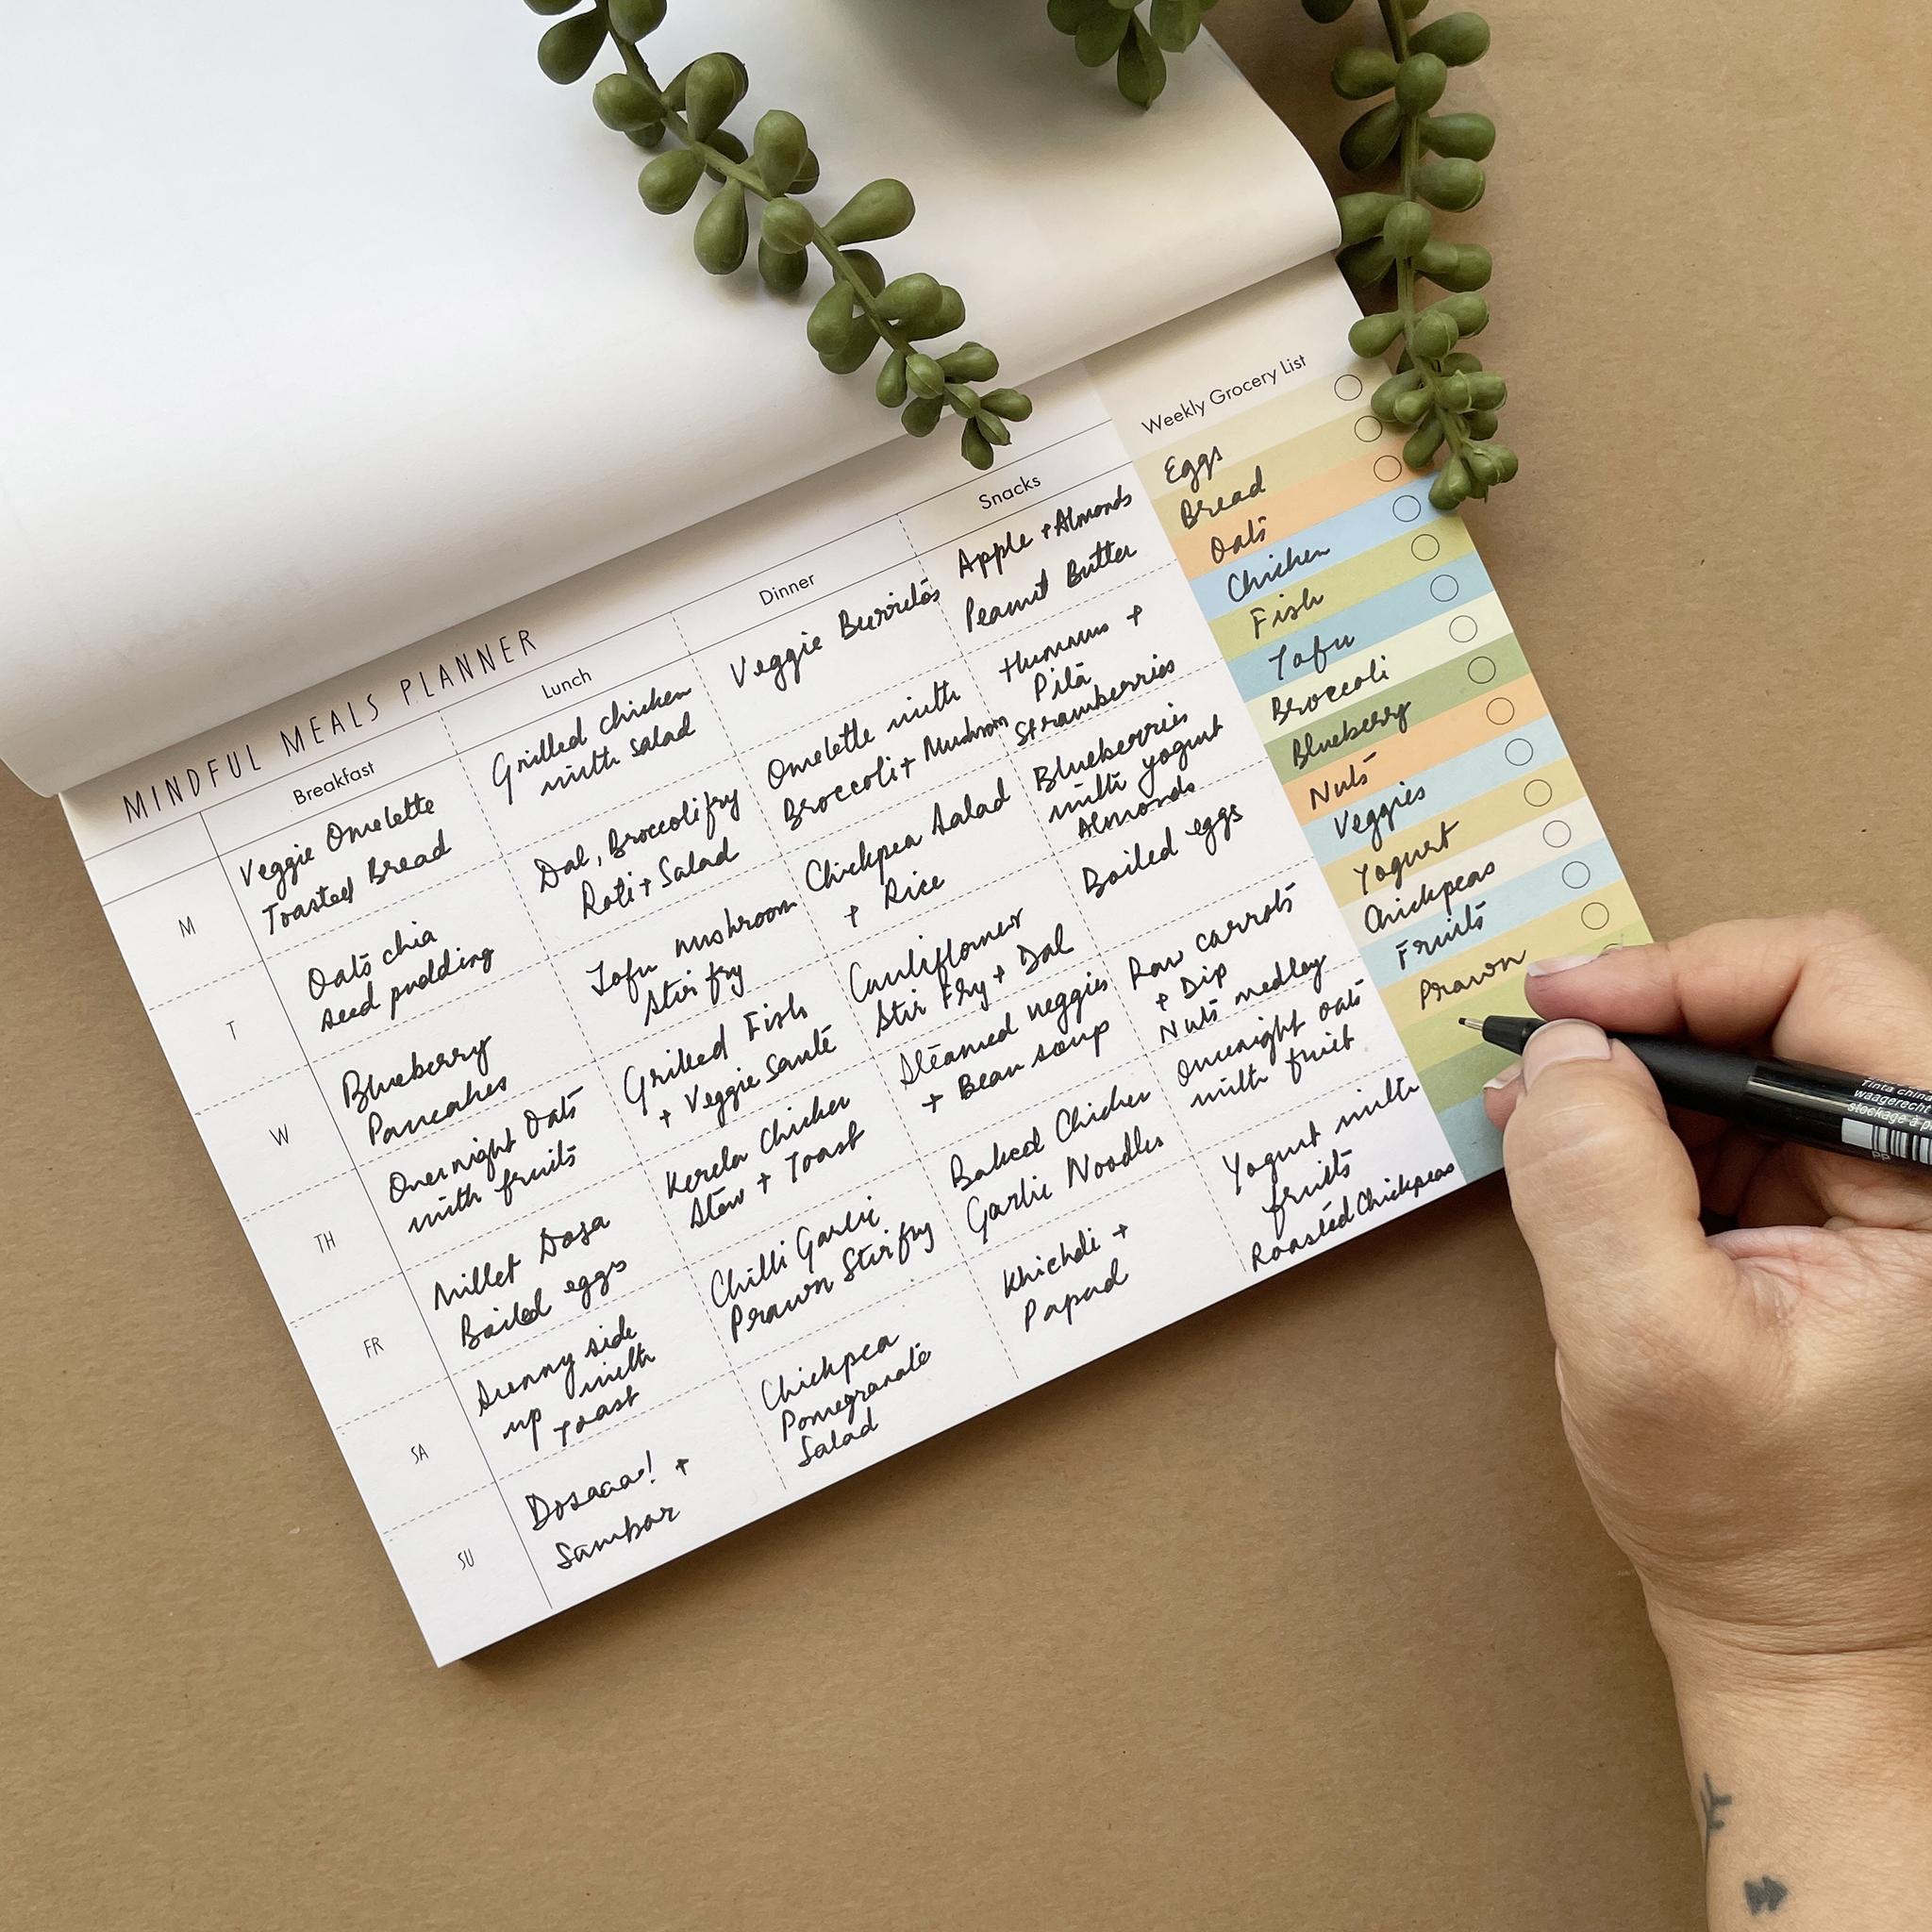 MINDFUL MEALS PLANNER
Breakfast
Lunch
Dinner
Snacks
M
Veggie Omelette
Toasted Bread
Grilled chicken
with salad
Veggie Burritos
Apple + Almonds
Peanut Butter
T
Oats chia
seed pudding
Dal, Broccoli fry
Roti + Salad
Omelette with
Broccoli + Mushroom
Hummus +
Pita
Strawberries
W
Blueberry
Pancakes
Tofu mushroom
Stir fry
Chickpea Salad
+ Rice
Blueberries
with yogurt
Almonds
TH
Overnight Oats
with fruits
Grilled Fish
+ Veggie Sauté
Cauliflower
Stir Fry + Dal
Boiled eggs
FR
Millet Dosa
Boiled eggs
Kerela Chicken
Stew + Toast
Steamed veggies
+ Bean soup
Raw carrots
+ Dip
Nuts medley
SA
Sunny side
up with
Toast
Chilli Garlic
Prawn Stir fry
Baked Chicken
Garlic Noodles
Overnight oats
with fruit
SU
Dosaaa! +
Sambar
Chickpea
Pomegranate
Salad
Khichdi +
Papad
Yogurt with
fruits
Roasted Chickpeas
Weekly Grocery List
Eggs
Bread
Oats
Chicken
Fish
Tofu
Broccoli
Blueberry
Nuts
Veggies
Yogurt
Chickpeas
Fruits
Prawn
Tinta china
waagerecht